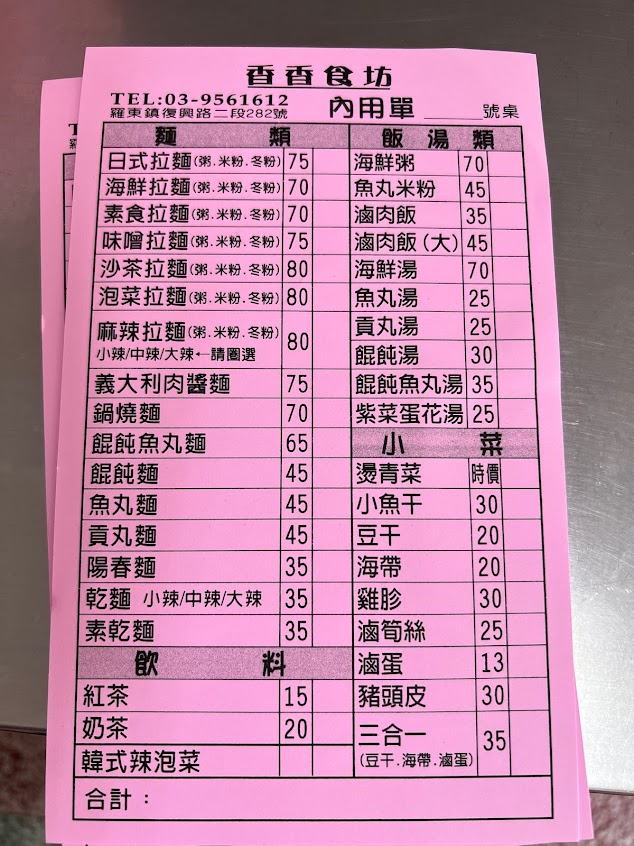 香香食坊
TEL:03-9561612
羅東鎮復興路二段282號
內用單 ______號桌
麵 類
日式拉麵(粥.米粉.冬粉) 75
海鮮拉麵(粥.米粉.冬粉) 70
素食拉麵(粥.米粉.冬粉) 70
味噌拉麵(粥.米粉.冬粉) 75
沙茶拉麵(粥.米粉.冬粉) 80
泡菜拉麵(粥.米粉.冬粉) 80
麻辣拉麵(粥.米粉.冬粉) 80
小辣/中辣/大辣←請圈選
義大利肉醬麵 75
鍋燒麵 70
餛飩魚丸麵 65
餛飩麵 45
魚丸麵 45
貢丸麵 45
陽春麵 35
乾麵 小辣/中辣/大辣 35
素乾麵 35
飲 料
紅茶 15
奶茶 20
韓式辣泡菜
飯 湯 類
海鮮粥 70
魚丸米粉 45
滷肉飯 35
滷肉飯(大) 45
海鮮湯 70
魚丸湯 25
貢丸湯 25
餛飩湯 30
餛飩魚丸湯 35
紫菜蛋花湯 25
小 菜
燙青菜 時價
小魚干 30
豆干 20
海帶 20
雞胗 30
滷筍絲 25
滷蛋 13
豬頭皮 30
三合一 35
(豆干.海帶.滷蛋)
合計：